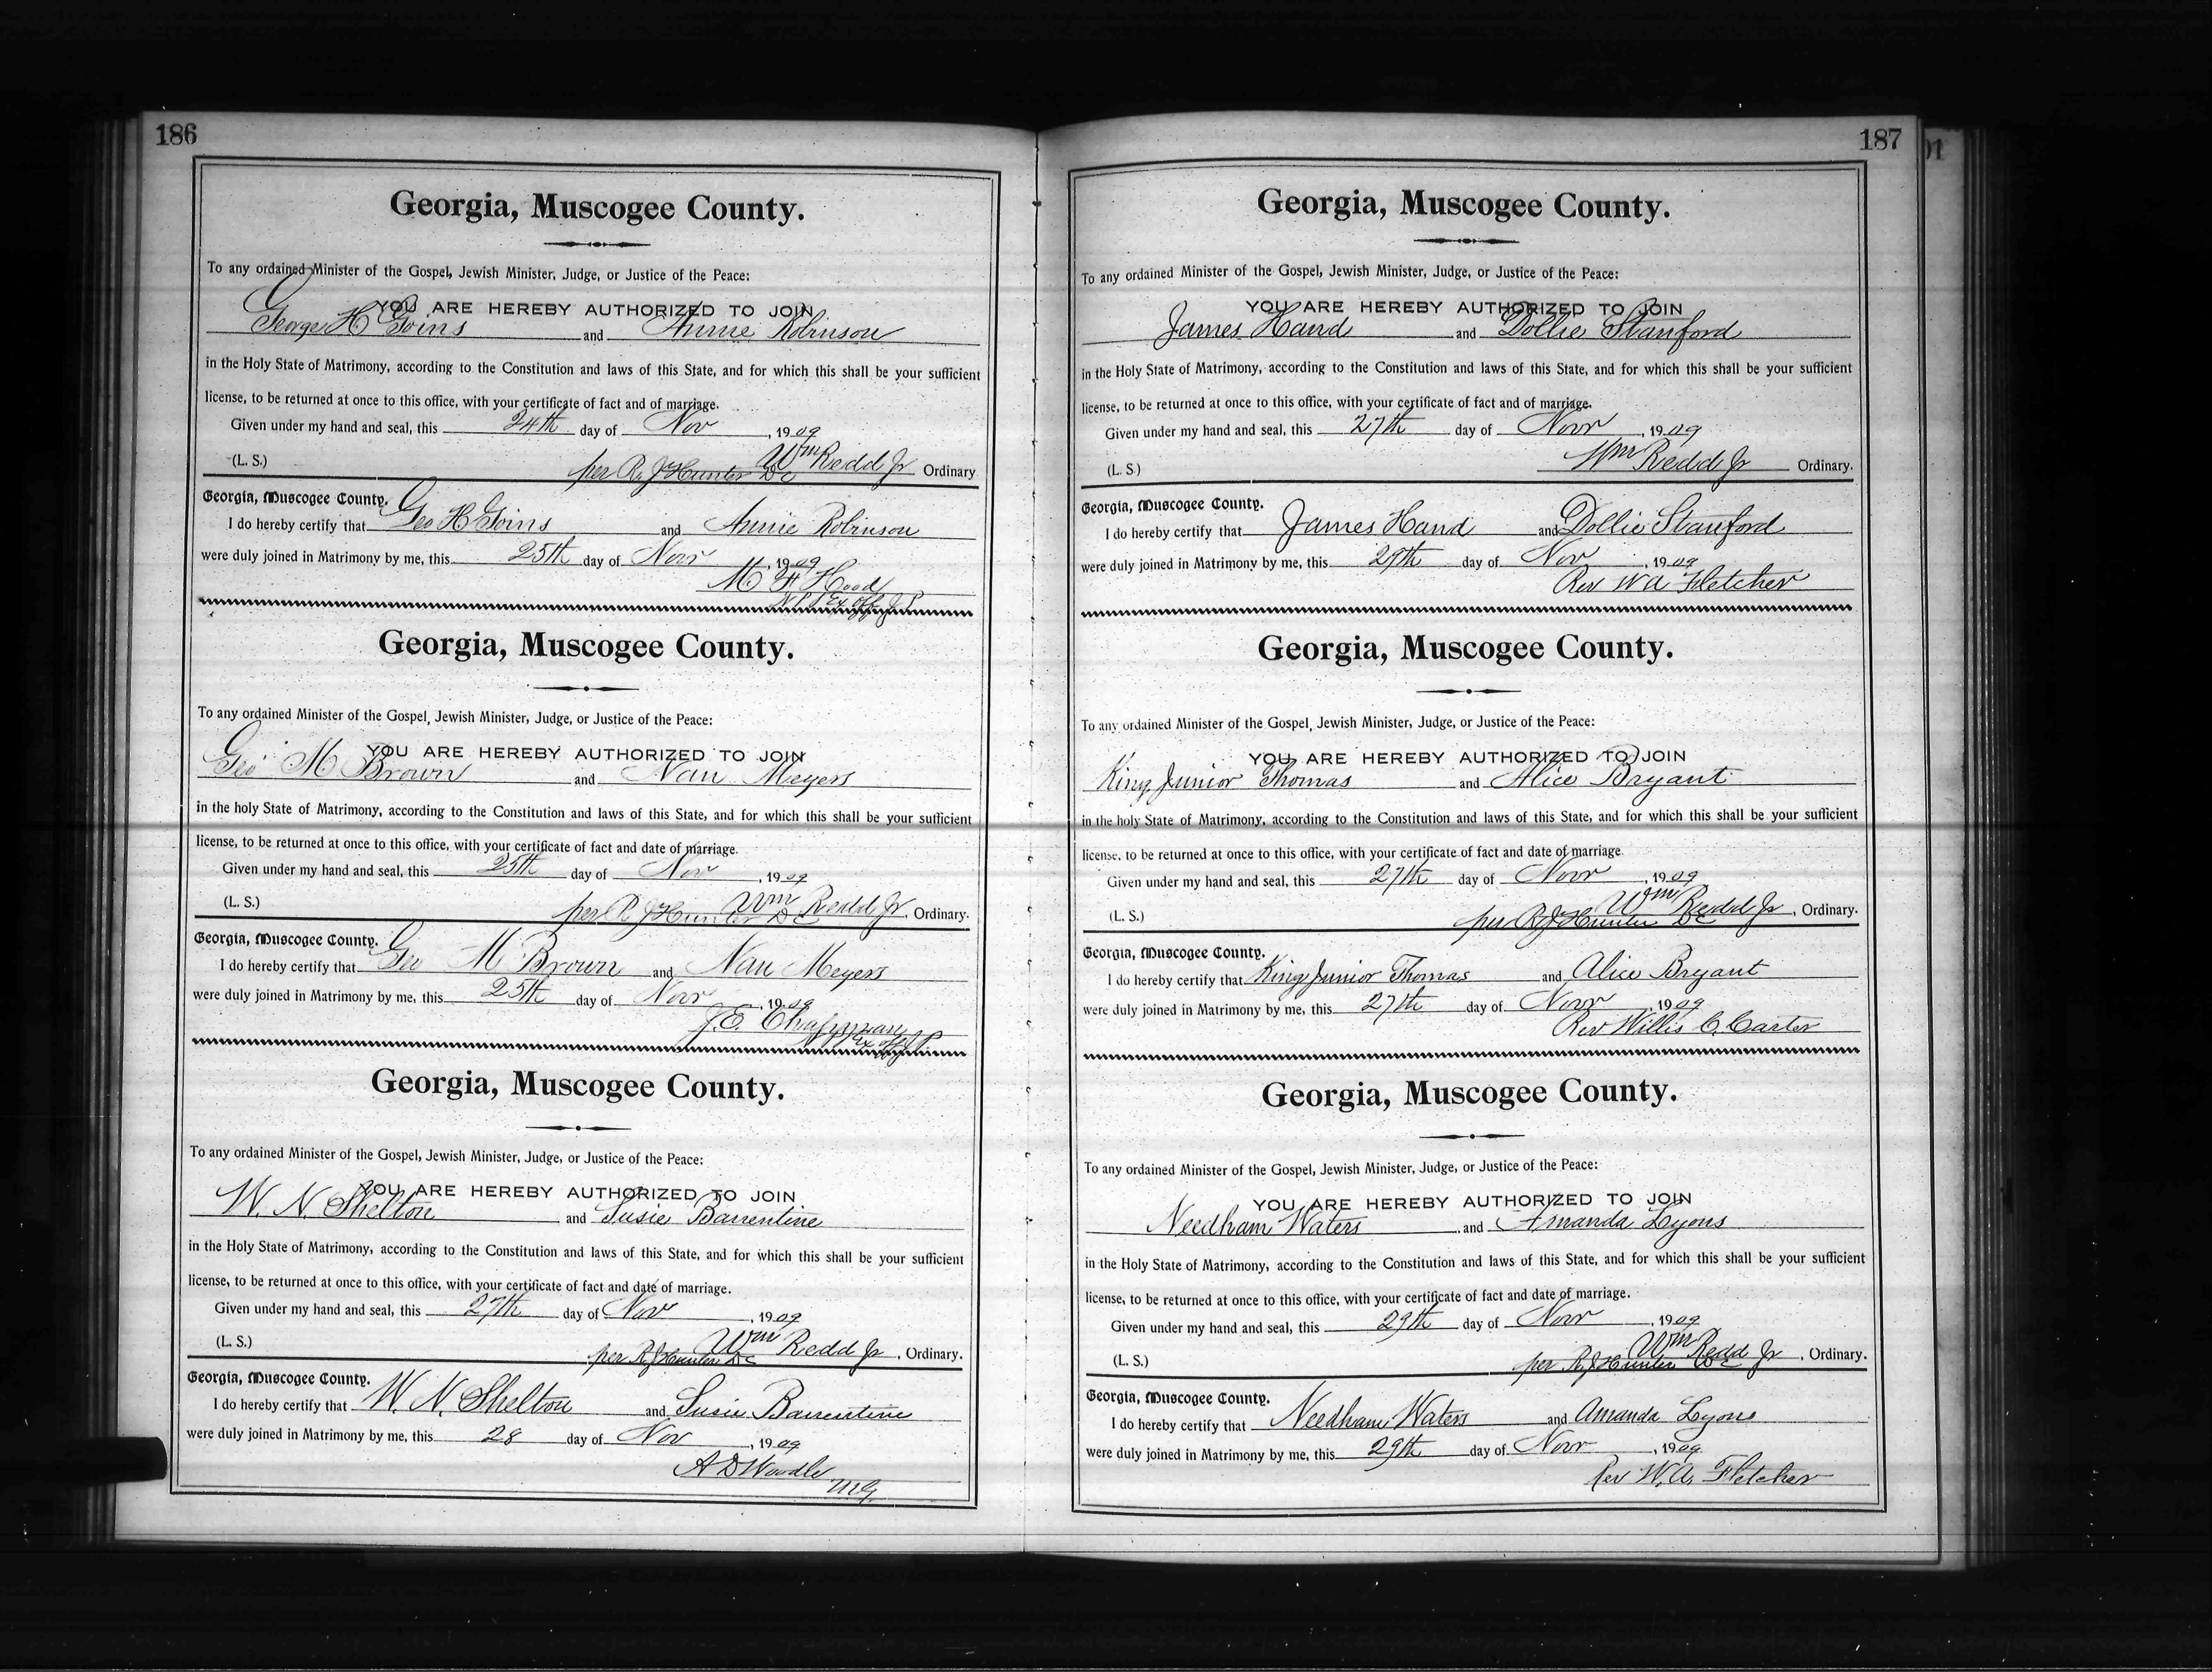 186
Georgia, Muscogee County.
To any ordained Minister of the Gospel, Jewish Minister, Judge, or Justice of the Peace:
YOU ARE HEREBY AUTHORIZED TO JOIN
George H Goins and Annie Robinson
in the Holy State of Matrimony, according to the Constitution and laws of this State, and for which this shall be your sufficient
license, to be returned at once to this office, with your certificate of fact and of marriage.
Given under my hand and seal, this 24th day of Nov, 1909
(L. S.) per R. J Hunter DC Wm Redd Jr Ordinary
Georgia, Muscogee County.
I do hereby certify that Geo H Goins and Annie Robinson
were duly joined in Matrimony by me, this 25th day of Nov, 1909
M F Hood
N P & Ex Off J. P.
Georgia, Muscogee County.
To any ordained Minister of the Gospel, Jewish Minister, Judge, or Justice of the Peace:
YOU ARE HEREBY AUTHORIZED TO JOIN
Geo M Brown and Nan Meyers
in the holy State of Matrimony, according to the Constitution and laws of this State, and for which this shall be your sufficient
license, to be returned at once to this office, with your certificate of fact and date of marriage.
Given under my hand and seal, this 25th day of Nov, 1909
(L. S.) per R. J Hunter DC Wm Redd Jr, Ordinary.
Georgia, Muscogee County.
I do hereby certify that Geo M Brown and Nan Meyers
were duly joined in Matrimony by me, this 25th day of Nov, 1909
J. E. Chapman
N P & Ex off J P.
Georgia, Muscogee County.
To any ordained Minister of the Gospel, Jewish Minister, Judge, or Justice of the Peace:
YOU ARE HEREBY AUTHORIZED TO JOIN
W. N. Shelton and Susie Barrentine
in the Holy State of Matrimony, according to the Constitution and laws of this State, and for which this shall be your sufficient
license, to be returned at once to this office, with your certificate of fact and date of marriage.
Given under my hand and seal, this 27th day of Nov, 1909
(L. S.) per R. J Hunter DC Wm Redd Jr, Ordinary.
Georgia, Muscogee County.
I do hereby certify that W. N. Shelton and Susie Barrentine
were duly joined in Matrimony by me, this 28 day of Nov, 1909
A D Woodle
M G
187
Georgia, Muscogee County.
To any ordained Minister of the Gospel, Jewish Minister, Judge, or Justice of the Peace:
YOU ARE HEREBY AUTHORIZED TO JOIN
James Hand and Dollie Stanford
in the Holy State of Matrimony, according to the Constitution and laws of this State, and for which this shall be your sufficient
license, to be returned at once to this office, with your certificate of fact and of marriage.
Given under my hand and seal, this 27th day of Nov, 1909
(L. S.) Wm Redd Jr Ordinary.
Georgia, Muscogee County.
I do hereby certify that James Hand and Dollie Stanford
were duly joined in Matrimony by me, this 29th day of Nov, 1909
Rev W A Fletcher
Georgia, Muscogee County.
To any ordained Minister of the Gospel, Jewish Minister, Judge, or Justice of the Peace:
YOU ARE HEREBY AUTHORIZED TO JOIN
King Junior Thomas and Alice Bryant
in the holy State of Matrimony, according to the Constitution and laws of this State, and for which this shall be your sufficient
license, to be returned at once to this office, with your certificate of fact and date of marriage
Given under my hand and seal, this 27th day of Nov, 1909
(L. S.) per R J Hunter DC Wm Redd Jr, Ordinary.
Georgia, Muscogee County.
I do hereby certify that King Junior Thomas and Alice Bryant
were duly joined in Matrimony by me, this 27th day of Nov, 1909
Rev Willis C. Carter
Georgia, Muscogee County.
To any ordained Minister of the Gospel, Jewish Minister, Judge, or Justice of the Peace:
YOU ARE HEREBY AUTHORIZED TO JOIN
Needham Waters and Amanda Lyons
in the Holy State of Matrimony, according to the Constitution and laws of this State, and for which this shall be your sufficient
license, to be returned at once to this office, with your certificate of fact and date of marriage.
Given under my hand and seal, this 29th day of Nov, 1909
(L. S.) per R. J Hunter DC Wm Redd Jr, Ordinary.
Georgia, Muscogee County.
I do hereby certify that Needham Waters and Amanda Lyons
were duly joined in Matrimony by me, this 29th day of Nov, 1909
Rev W. A. Fletcher